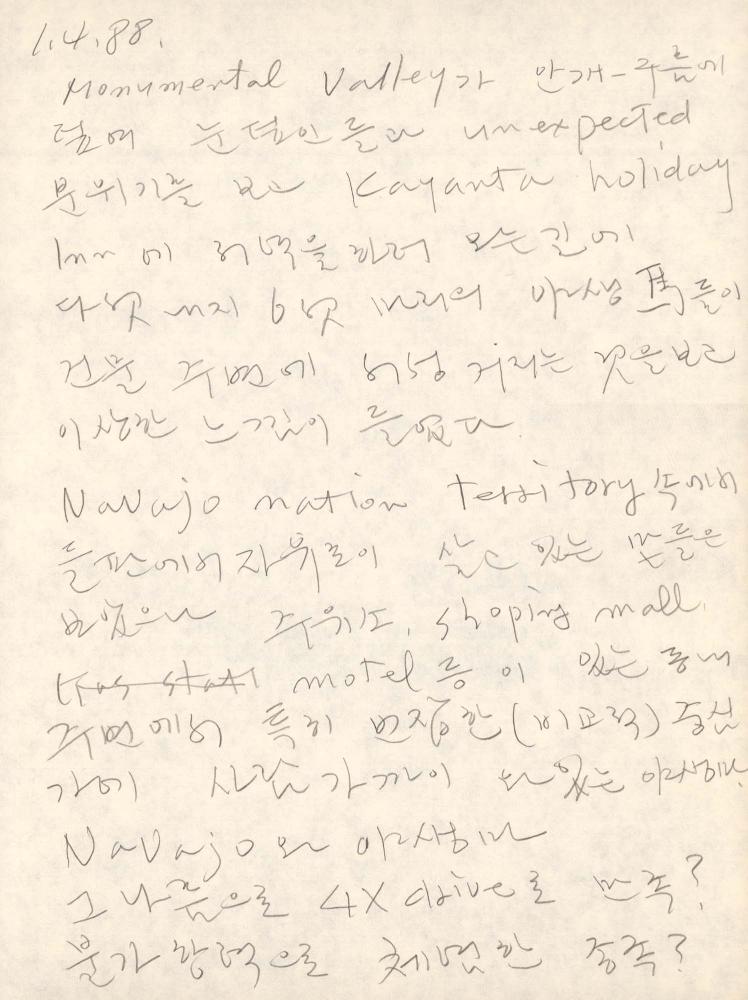 1.4.88.
Monumental Valley가 안개-구름에
덮여 눈 덮인 들과 unexpected
분위기를 보고 Kayanta holiday
Inn에 저녁을 하러 오는 길에
다섯 내지 6섯 마리의 야생 馬들이
건물 주변에 서성거리는 것을 보고
이상한 느낌이 들었다.
Navajo nation territory 속에서
들판에서 자유로이 살고 있는 말들은
보았으나 주위도, shoping mall,
motel 등이 있는 동네
주변에서 특히 번잡한 (비교적) 중심
가에 사람 가까이 와 있는 야생마.
Navajo와 야생마
그 나름으로 4X drive로 만족?
불가항력으로 체념한 종족?